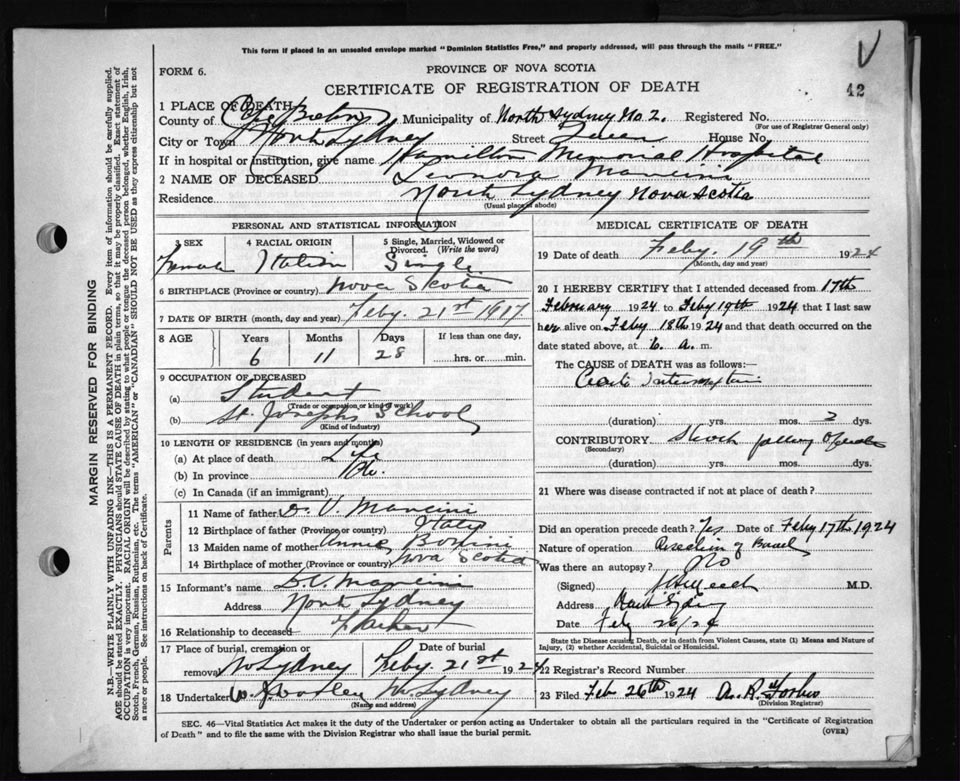 This form if placed in an unsealed envelope marked "Dominion Statistics Free," and properly addressed, will pass through the mails "FREE."
FORM 6.
PROVINCE OF NOVA SCOTIA
42
CERTIFICATE OF REGISTRATION OF DEATH
1 PLACE OF DEATH
County of Cape Breton Municipality of North Sydney No. 2. Registered No.
(For use of Registrar General only)
City or Town North Sydney Street Queen House No.
If in hospital or institution, give name Hamilton Memorial Hospital
2 NAME OF DECEASED Leonora Mancini
Residence North Sydney Nova Scotia
(Usual place of abode)
PERSONAL AND STATISTICAL INFORMATION
3 SEX 4 RACIAL ORIGIN 5 Single, Married, Widowed or Divorced. (Write the word)
Female Italian Single
6 BIRTHPLACE (Province or country) Nova Scotia
7 DATE OF BIRTH (month, day and year) Feby. 21st 1917
8 AGE Years Months Days If less than one day,
6 11 28 hrs. or min.
9 OCCUPATION OF DECEASED
(a) Student
(Trade or occupation or kind of work)
(b) St. Josephs School
(Kind of industry)
10 LENGTH OF RESIDENCE (in years and months)
(a) At place of death Life
(b) In province
(c) In Canada (if an immigrant)
Parents
11 Name of father D. V. Mancini
12 Birthplace of father (Province or country) Italy
13 Maiden name of mother Annie
14 Birthplace of mother (Province or country) Nova Scotia
15 Informant's name D. V. Mancini
Address North Sydney
16 Relationship to deceased Father
17 Place of burial, cremation or removal Date of burial
N. Sydney Feby. 21st 1924
18 Undertaker N. Sydney
(Name and address)
MEDICAL CERTIFICATE OF DEATH
19 Date of death Feby. 19th 1924
(Month, day and year)
20 I HEREBY CERTIFY that I attended deceased from 17th
February 1924 to Feby 19th 1924 that I last saw
her alive on Feby 18th 1924 and that death occurred on
date stated above, at 6. a. m.
The CAUSE OF DEATH was as follows:—
(duration) yrs. mos. 2 dys.
CONTRIBUTORY Shock
(Secondary)
(duration) yrs. mos. dys.
21 Where was disease contracted if not at place of death?
Did an operation precede death? Yes Date of Feby 17th 1924
Nature of operation of Bowel
Was there an autopsy? No
(Signed) M.D.
Address North Sydney
Date Feb 26/24
State the Disease causing Death, or in death from Violent Causes, state (1) Means and Nature of Injury, (2) whether Accidental, Suicidal or Homicidal.
22 Registrar's Record Number
23 Filed Feb 26th 1924
(Division Registrar)
SEC. 46—Vital Statistics Act makes it the duty of the Undertaker or person acting as Undertaker to obtain all the particulars required in the "Certificate of Registration
of Death" and to file the same with the Division Registrar who shall issue the burial permit.
(OVER)
MARGIN RESERVED FOR BINDING
N.B—WRITE PLAINLY WITH UNFADING INK—THIS IS A PERMANENT RECORD. Every item of information should be carefully supplied.
AGE should be stated EXACTLY. PHYSICIANS should STATE CAUSE OF DEATH in plain terms, so that it may be properly classified. Exact statement of
OCCUPATION is very important. RACIAL ORIGIN will be described by stating to what people or tongue the deceased person belonged, whether English, Irish,
Scotch, French, German, Russian, Ruthenian, etc. The terms "AMERICAN" or "CANADIAN" SHOULD NOT BE USED as they express citizenship but not
a race or people. See instructions on back of Certificate.